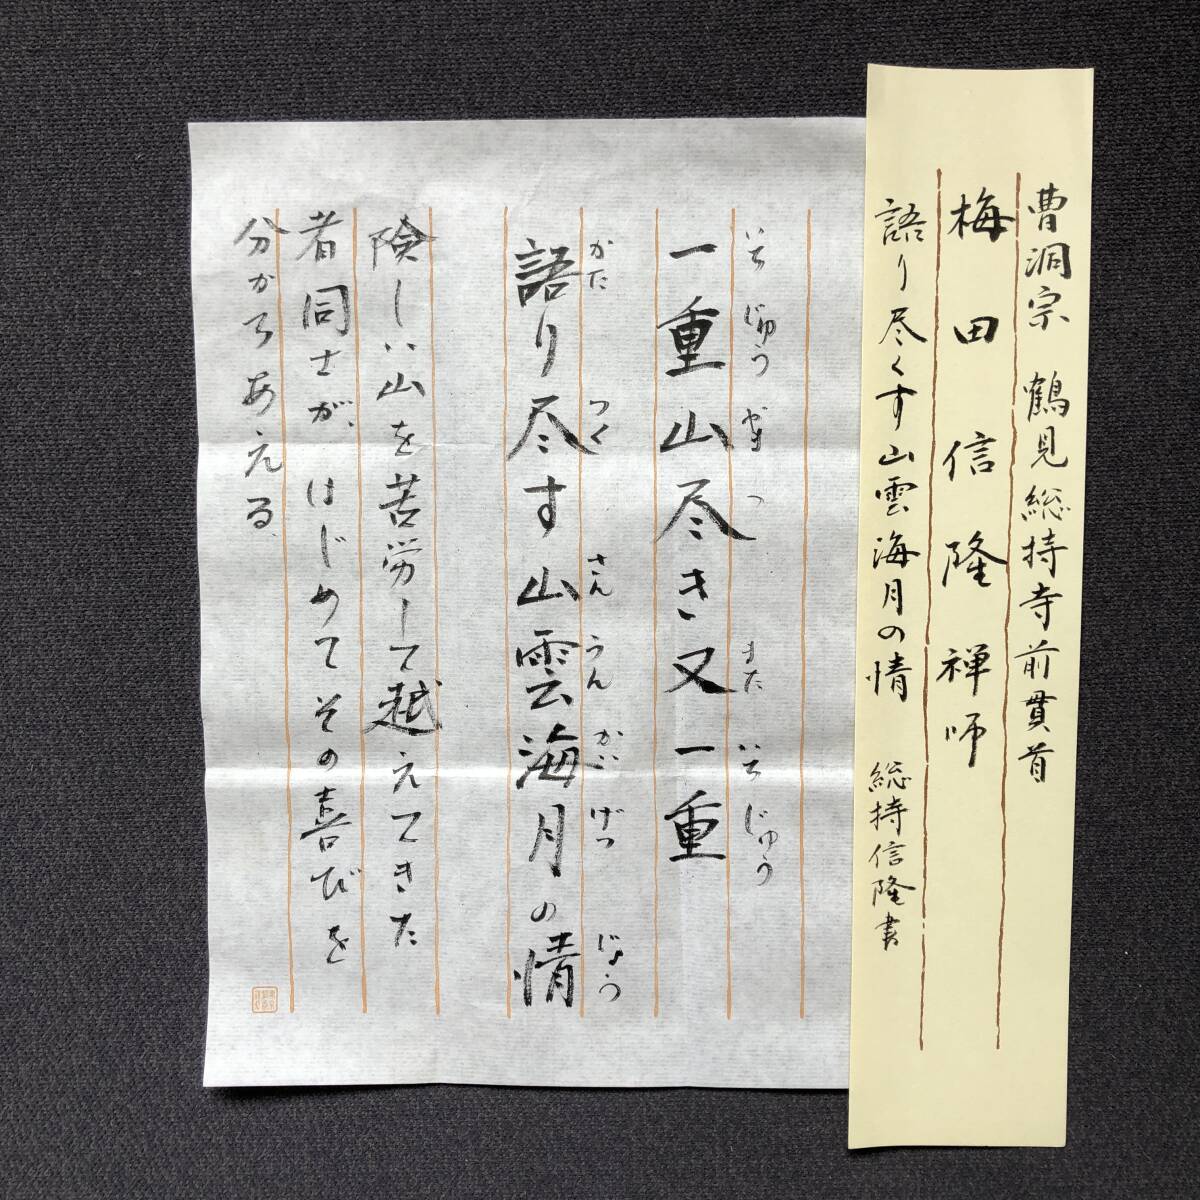 曹洞宗 鶴見総持寺前貫首
梅田信隆禅師
語り尽くす山雲海月の情 総持信隆書
いち じゅう やま つ また いち じゅう
一重山尽き又一重
かた つく さん うん かい げつ じょう
語り尽す山雲海月の情
険しい山を苦労して越えてきた
者同士が、はじめてその喜びを
分かちあえる、